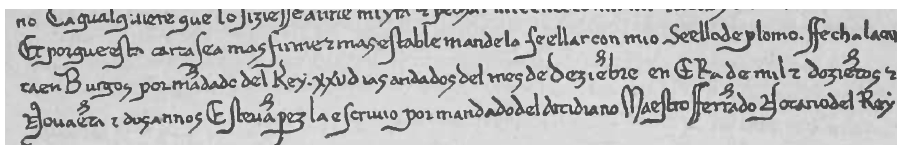 no Ca qualquiere que lo fiziesse aurie mi yra
Et porque esta carta sea mas firme z mas estable mandela seellar con mio Seello de plomo. ffecha la car
ta en Burgos por mãdado del Rey. xxv dias andados del mes de deziẽbre en ERa de mil z dozietos z
Nouaẽta z dos annos Esteuã perez la escriuio por mandado del Arcidiano Maestro fferrãdo Notario del Rey